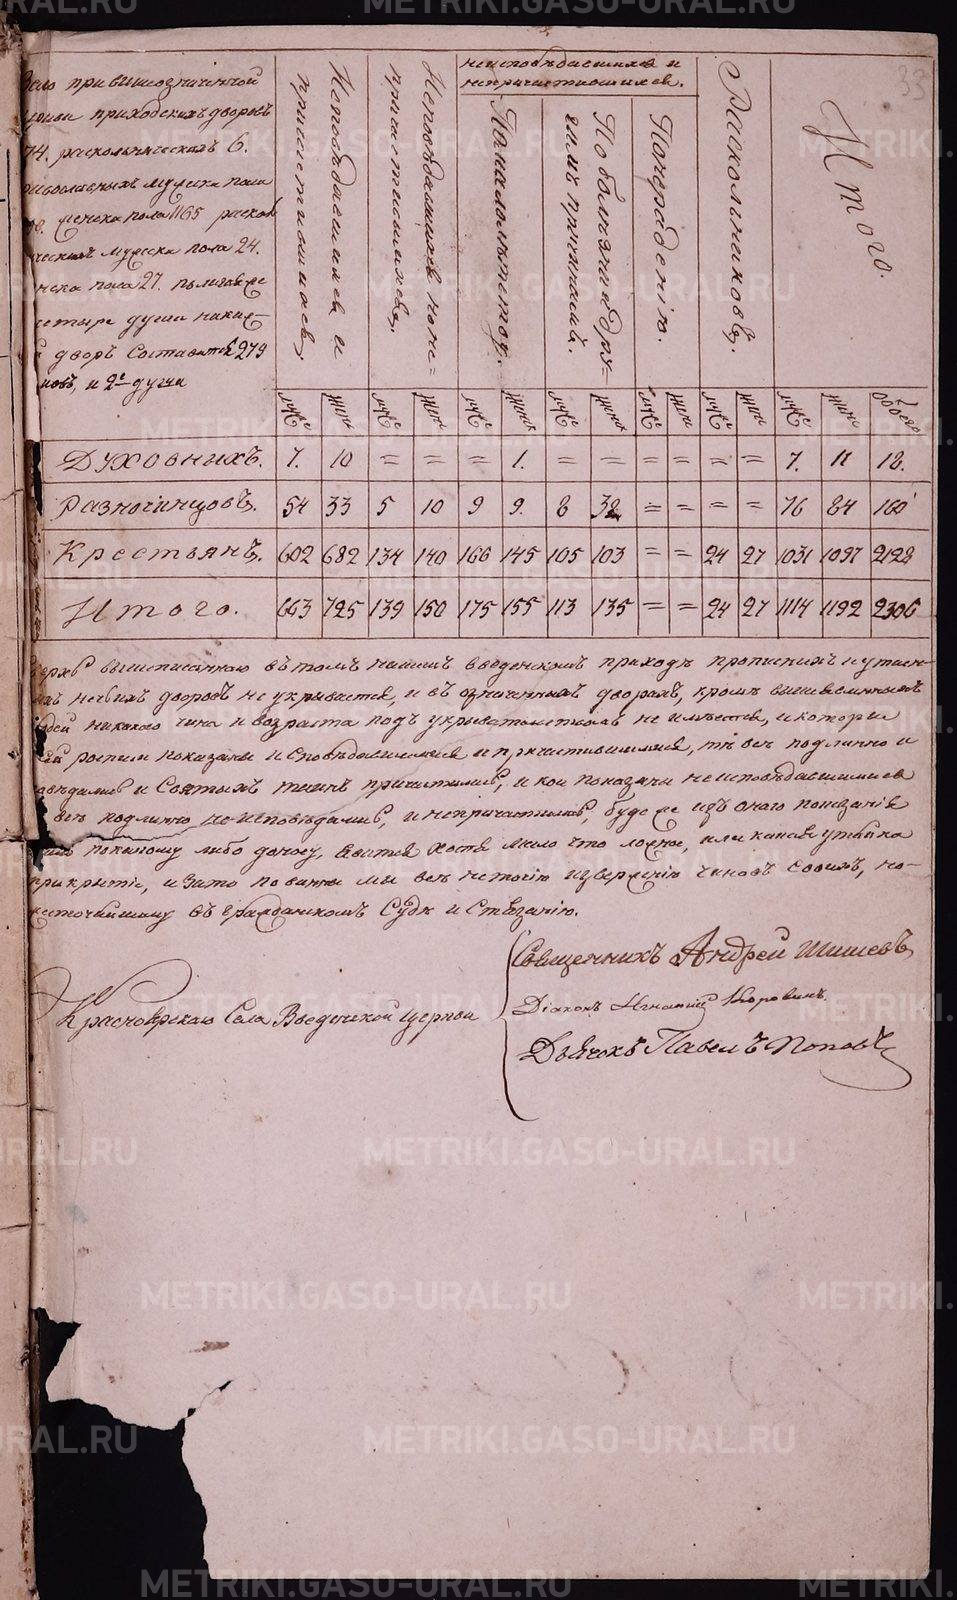 33
при вышеозначенной
приходскихъ дворовъ
74. раскольническихъ 6.
мужеска пола
женска пола 1165 раскол
мужеска пола 24.
пола 27. полагая
четыре души на
дворъ составитъ 279
и 2 души
Исповѣдавшихся и
причастившихся
Исповѣдавшихся но не=
причастившихся,
неисповѣдавшихся и
непричастившихся.
По малолѣтству.
По болѣзни и дру-
гимъ причинамъ.
По нерадѣнію.
Раскольниковъ.
Итого.
муж жен муж жен муж жен муж жен муж жен муж жен муж жен обоего
Духовныхъ. 7. 10 = = = 1. = = = = = = 7. 11 18.
Разночинцовъ. 54 33 5 10 9 9. 8 32 = = = = 76 84 160
Крестьянъ. 602 682 134 140 166 145 105 103 = = 24 27 1031 1097 2128
Итого. 663 725 139 150 175 155 113 135 = = 24 27 1114 1192 2306
вышеписанного въ томъ нашемъ введенскомъ приходѣ прописныхъ и утаен-
дворовъ не укрывается, и въ означенныхъ дворахъ, кромѣ вышеявленныхъ
никакого чина и возраста подъ укрывательствомъ не имѣется, и которые
росписи показаны исповѣдавшимися и причастившимися, тѣ всѣ подлинно и
и святыхъ таинъ причастились, и кои показаны неисповѣдавшимися
всѣ подлинно не исповѣдались, и не причастились, буде же изъ оного показанія
по какому либо доносу, явится хотя мало что ложное, или какая утайка
прикрытіе, и за то повинны мы всѣ изверженію чиновъ своихъ, но
въ гражданскомъ судѣ истязанію.
Священникъ Андрей Шишевъ
Красноярскаго Села Введенской церкви
Діаконъ Игнатій Коровинъ.
Дьячокъ Павелъ Поповъ
METRIKI.GASO-URAL.RU